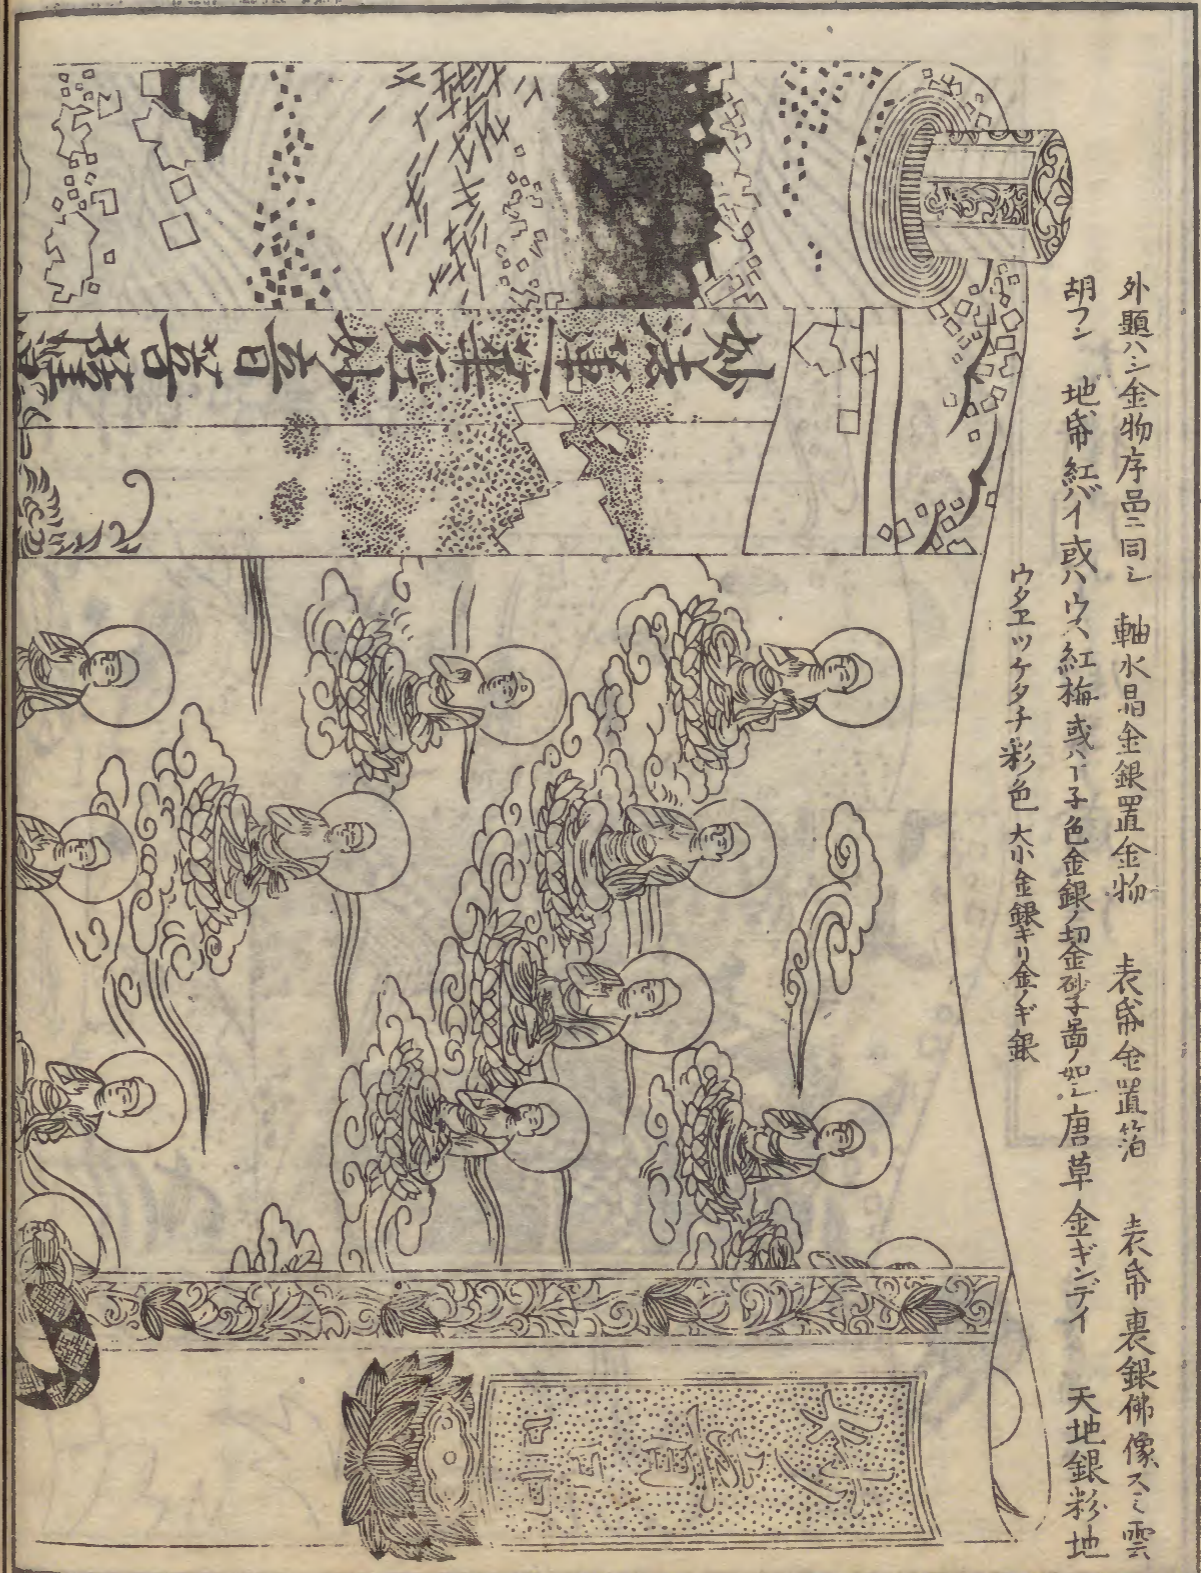 外題ハシ金物序品ニ同シ 軸水晶金銀置金物 表帋金置箔 表帋裏銀佛像スミ雲
胡フン 地帋紅バイ或ハウス紅梅或ハ丁子色金銀ノ切金砂子畧ノ如シ唐草金ギンデイ 天地銀彩地
ウタヱツケタチ彩色 大小金銀キリ金ノギ銀
妙法蓮華経妙音菩薩